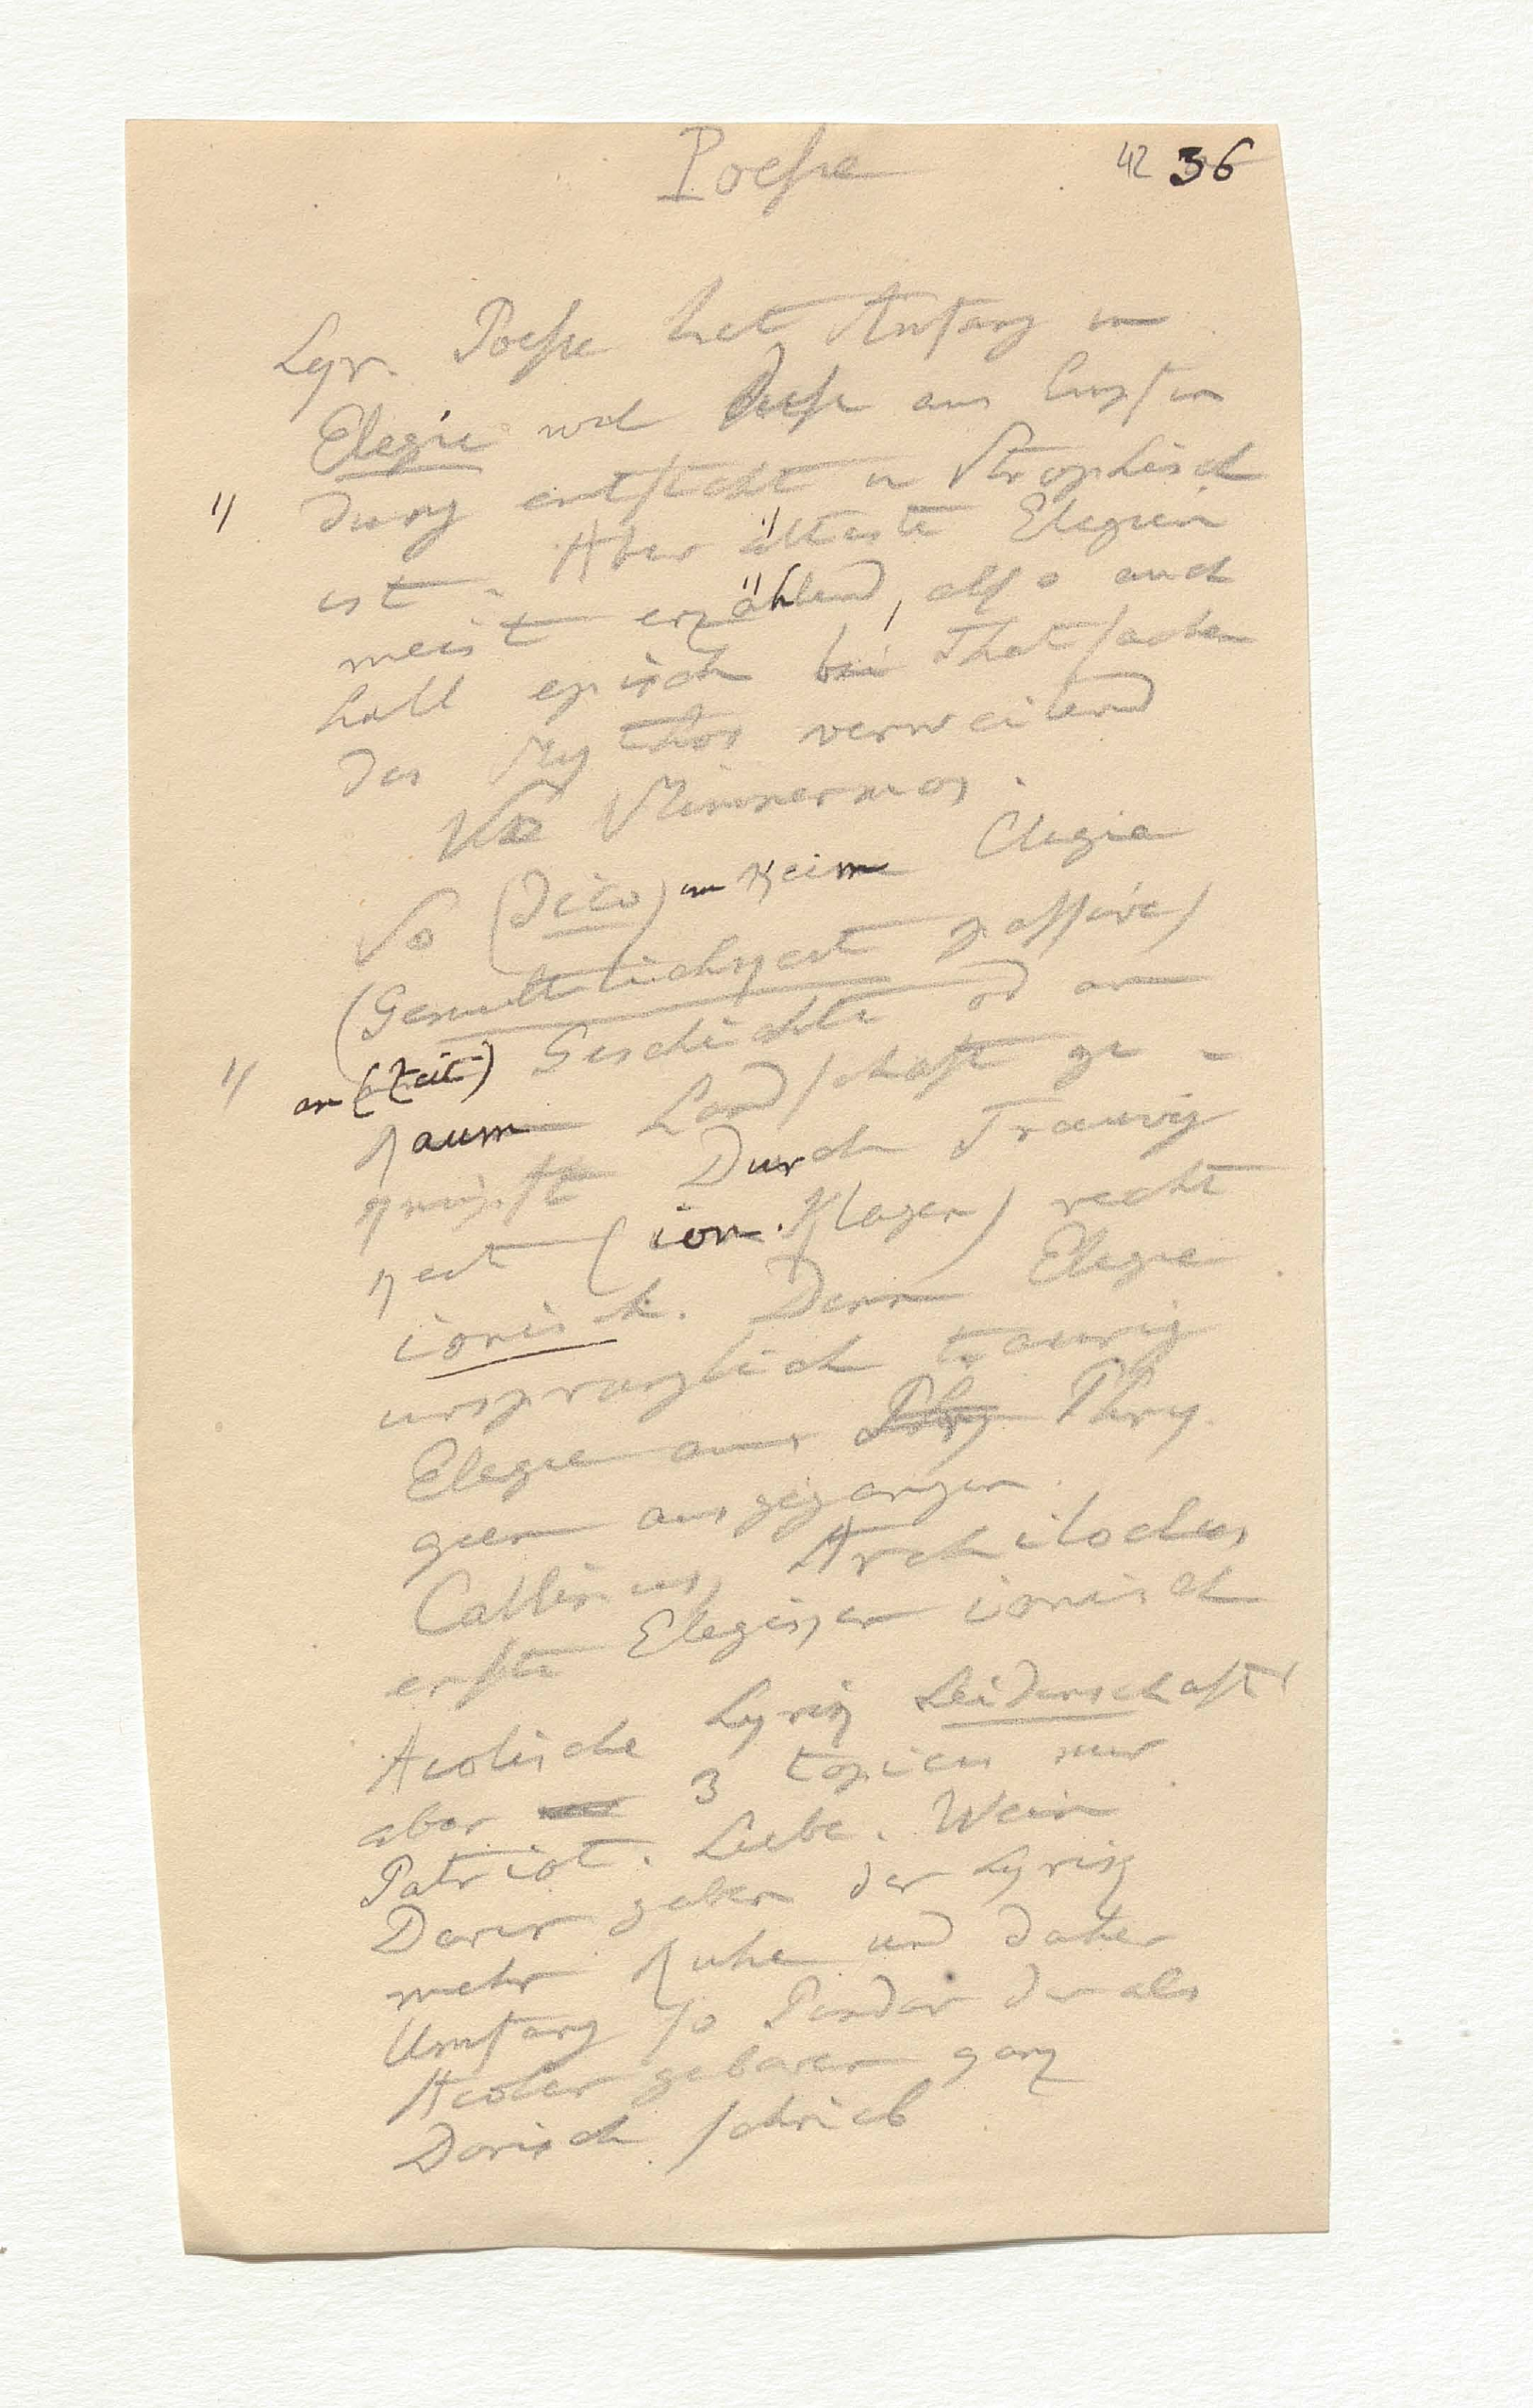 Poesie
42 36
Lyr. Poesie hat Anfang in
Elegie weil diese aus Empfin
dung entsteht u Strophisch
ist. Aber älteste Elegien
meist erzählend, also auch
halb episch bei Thatsachen
des Mythos verweilend
Mimnermos.
So (Jean) im Keim Elegie
(Gemüthlichkeit passive)
an (Zeit) Geschichte od an
Raum Landschaft ge-
knüpft Durch Traurig
keit (ion. Klagen) recht
ionisch. Denn Elegie
ursprunglich traurig
Elegie aus Phry Phry
gien ausgegangen.
Callinus, Archilochos
erste Elegiker ionisch
Aeolische Lyrik Leidenschaft
aber 3 topien nur
Patriot. Liebe. Wein
Dorer geben der Lyrik
mehr Ruhe und daher
Umfang so Pindar der als
Aeoler geboren ganz
Dorisch schrieb